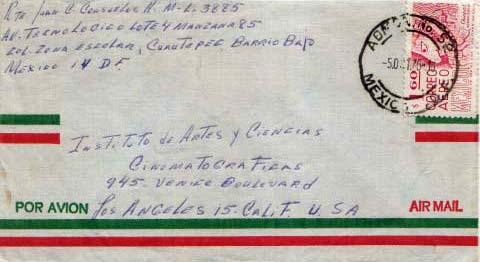 Rte Juan C. Consuelos H. M-L. 3885
AV. TECNOLOGICO LOTE 4 MANZANA 85
COL. ZONA ESCOLAR, CUAUTEPEC BARRIO BAJO
MEXICO 14 D.F.
ADMON. No. 58
-5.OCT.76
MEXICO
$1.60
CORREO AEREO
MEXICO
Instituto de Artes y Ciencias
CINEMATOGRAFICAS
945. VENICE BOULEVARD
POR AVION
Los ANGELES 15. CALIF. U.SA
AIR MAIL